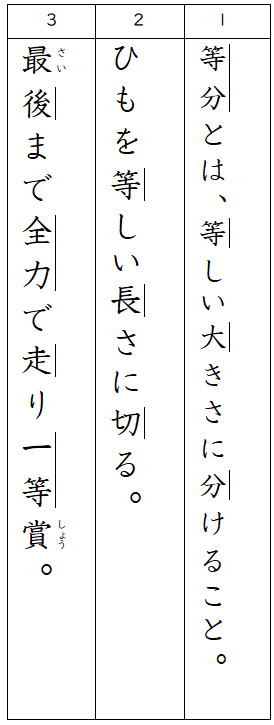 1
等分とは、等しい大きさに分けること。
2
ひもを等しい長さに切る。
3
最後まで全力で走り一等賞。
さい
しょう